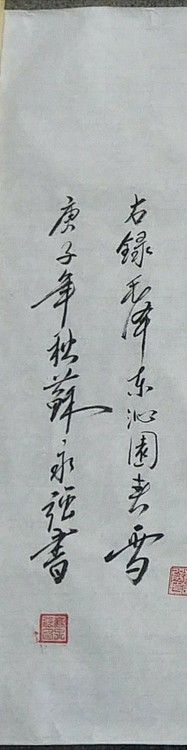 右録毛泽东沁園春雪
庚子年秋蘇永强書